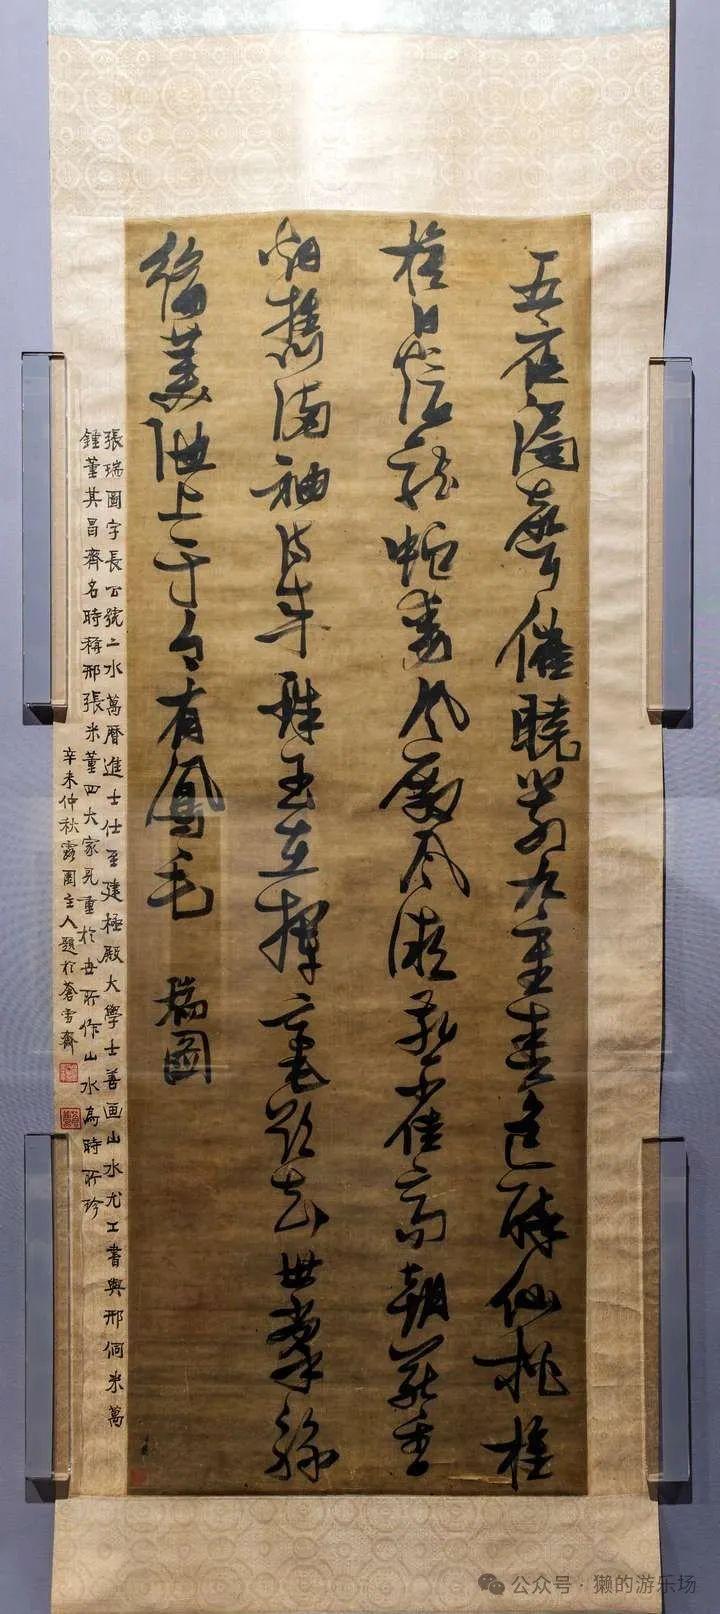 五夜漏聲催曉箭九重春色醉仙桃旌
旗日煖龍蛇動宮殿風微燕雀高朝罷香
烟攜滿袖詩成珠玉在揮毫欲知世掌絲
綸美池上于今有鳳毛 瑞圖
張瑞圖字長公號二水萬曆進士仕至建極殿大學士善画山水尤工書與邢侗米萬
鍾董其昌齊名時稱邢張米董四大家見重於世所作山水為時所珍
辛未仲秋露園主人題於蒼雪齋
公众号·獭的游乐场